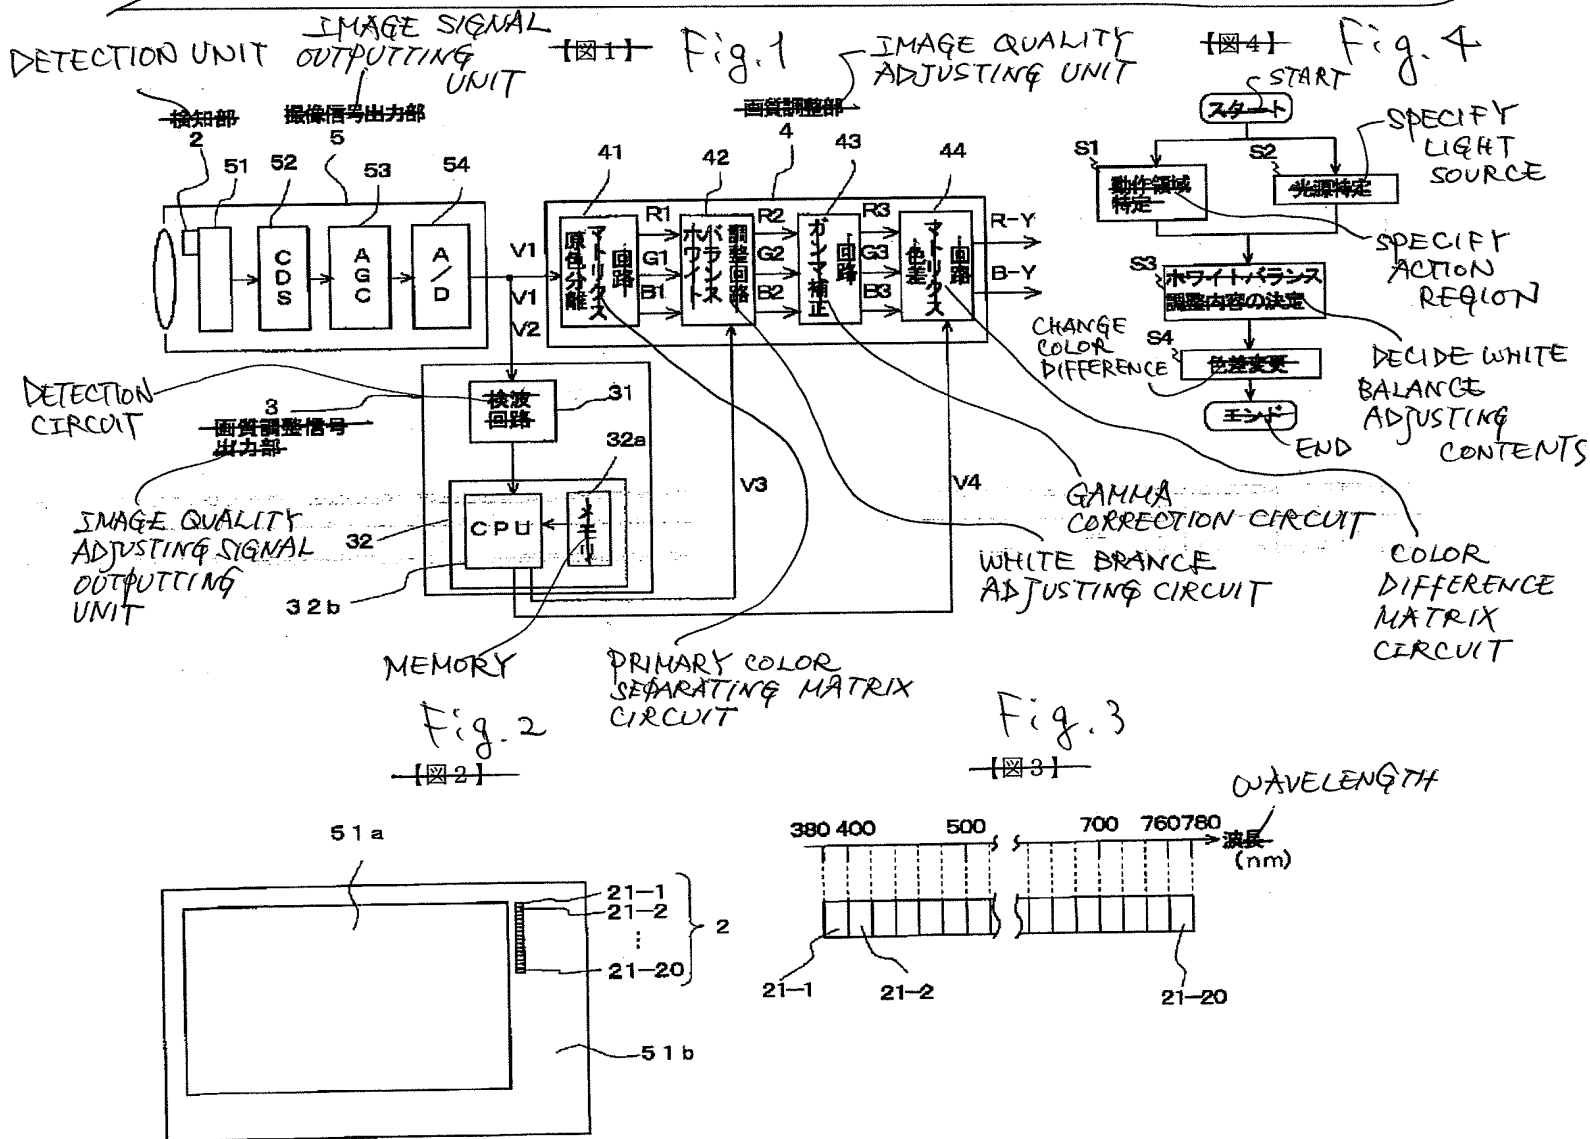 DETECTION UNIT
IMAGE SIGNAL
OUTPUTTING
UNIT
【図1】 Fig.1
IMAGE QUALITY
ADJUSTING UNIT
検知部
2
撮像信号出力部
5
画質調整部
4
51
52
53
54
41
42
43
44
CDS
AGC
A/D
V1
V1
V2
原色分離
マトリクス
回路
R1
G1
B1
ホワイト
バランス
調整回路
R2
G2
B2
ガンマ補正
回路
R3
G3
B3
色差
マトリクス
回路
R-Y
B-Y
DETECTION
CIRCUIT
3
画質調整信号
出力部
検波
回路
31
32a
CPU
メモリ
32
32b
V3
V4
IMAGE QUALITY
ADJUSTING SIGNAL
OUTPUTTING
UNIT
MEMORY
PRIMARY COLOR
SEPARATING MATRIX
CIRCUIT
WHITE BRANCE
ADJUSTING CIRCUIT
GAMMA
CORRECTION CIRCUIT
COLOR
DIFFERENCE
MATRIX
CIRCUIT
【図4】 Fig.4
START
スタート
S1
動作領域
特定
S2
光源特定
SPECIFY
LIGHT
SOURCE
SPECIFY
ACTION
REGION
S3
ホワイトバランス
調整内容の決定
CHANGE
COLOR
DIFFERENCE
S4
色差変更
DECIDE WHITE
BALANCE
ADJUSTING
CONTENTS
エンド
END
Fig.2
【図2】
51a
21-1
21-2
⋮
21-20
2
51b
Fig.3
【図3】
WAVELENGTH
380 400 500 700 760 780 波長
(nm)
21-1
21-2
21-20